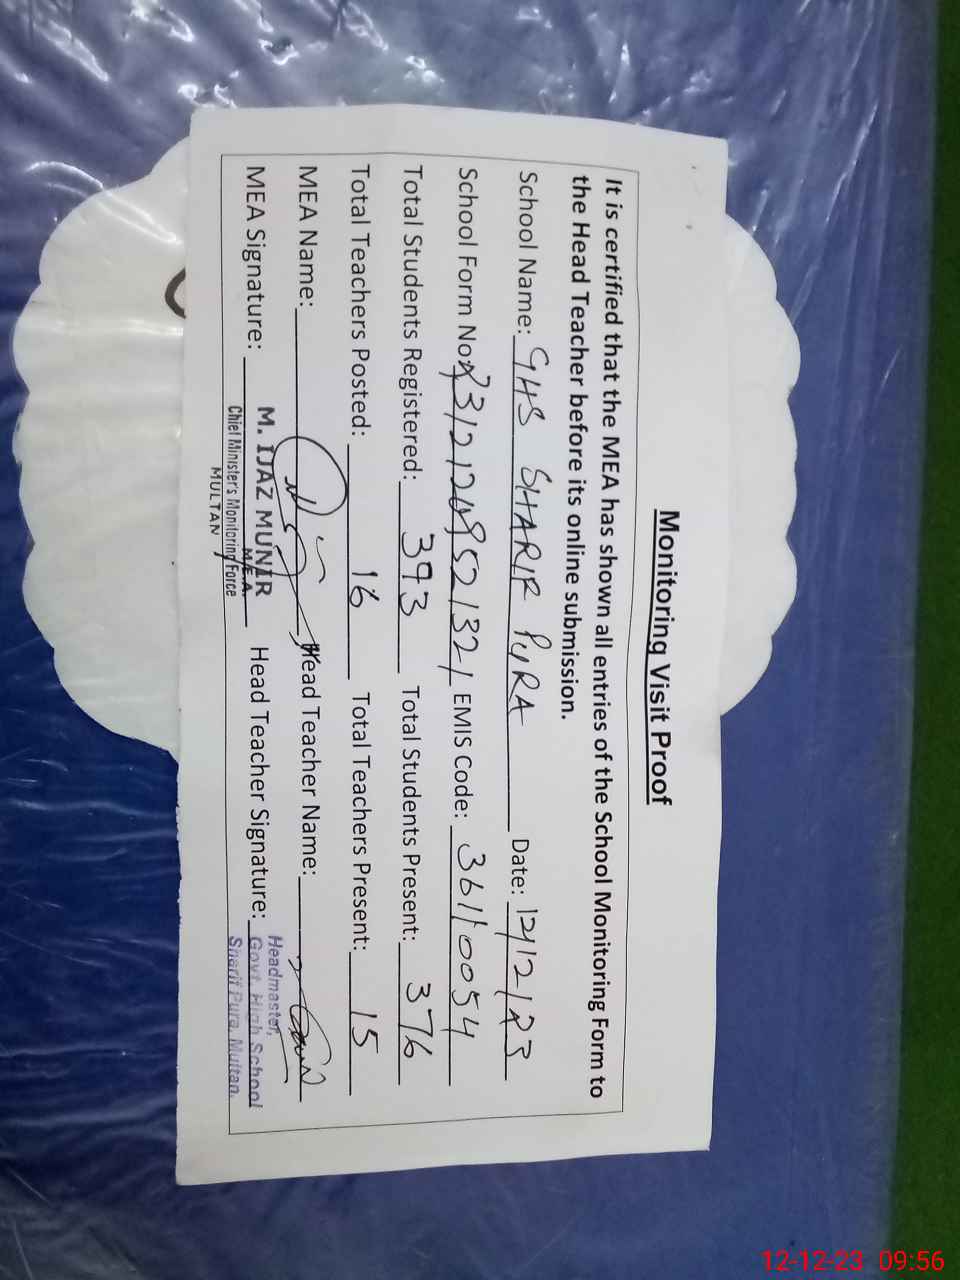 Monitoring Visit Proof
It is certified that the MEA has shown all entries of the School Monitoring Form to
the Head Teacher before its online submission.
School Name: GHS SHARIF PURA Date: 12/12/23
School Form No: EMIS Code: 36110054
Total Students Registered: 393 Total Students Present: 376
Total Teachers Posted: 16 Total Teachers Present: 15
MEA Name: Head Teacher Name:
MEA Signature: Head Teacher Signature:
M. IJAZ MUNIR
M.E.A.
Chief Minister's Monitoring Force
MULTAN
Headmaster,
Govt. High School
Sharif Pura, Multan.
12-12-23 09:56